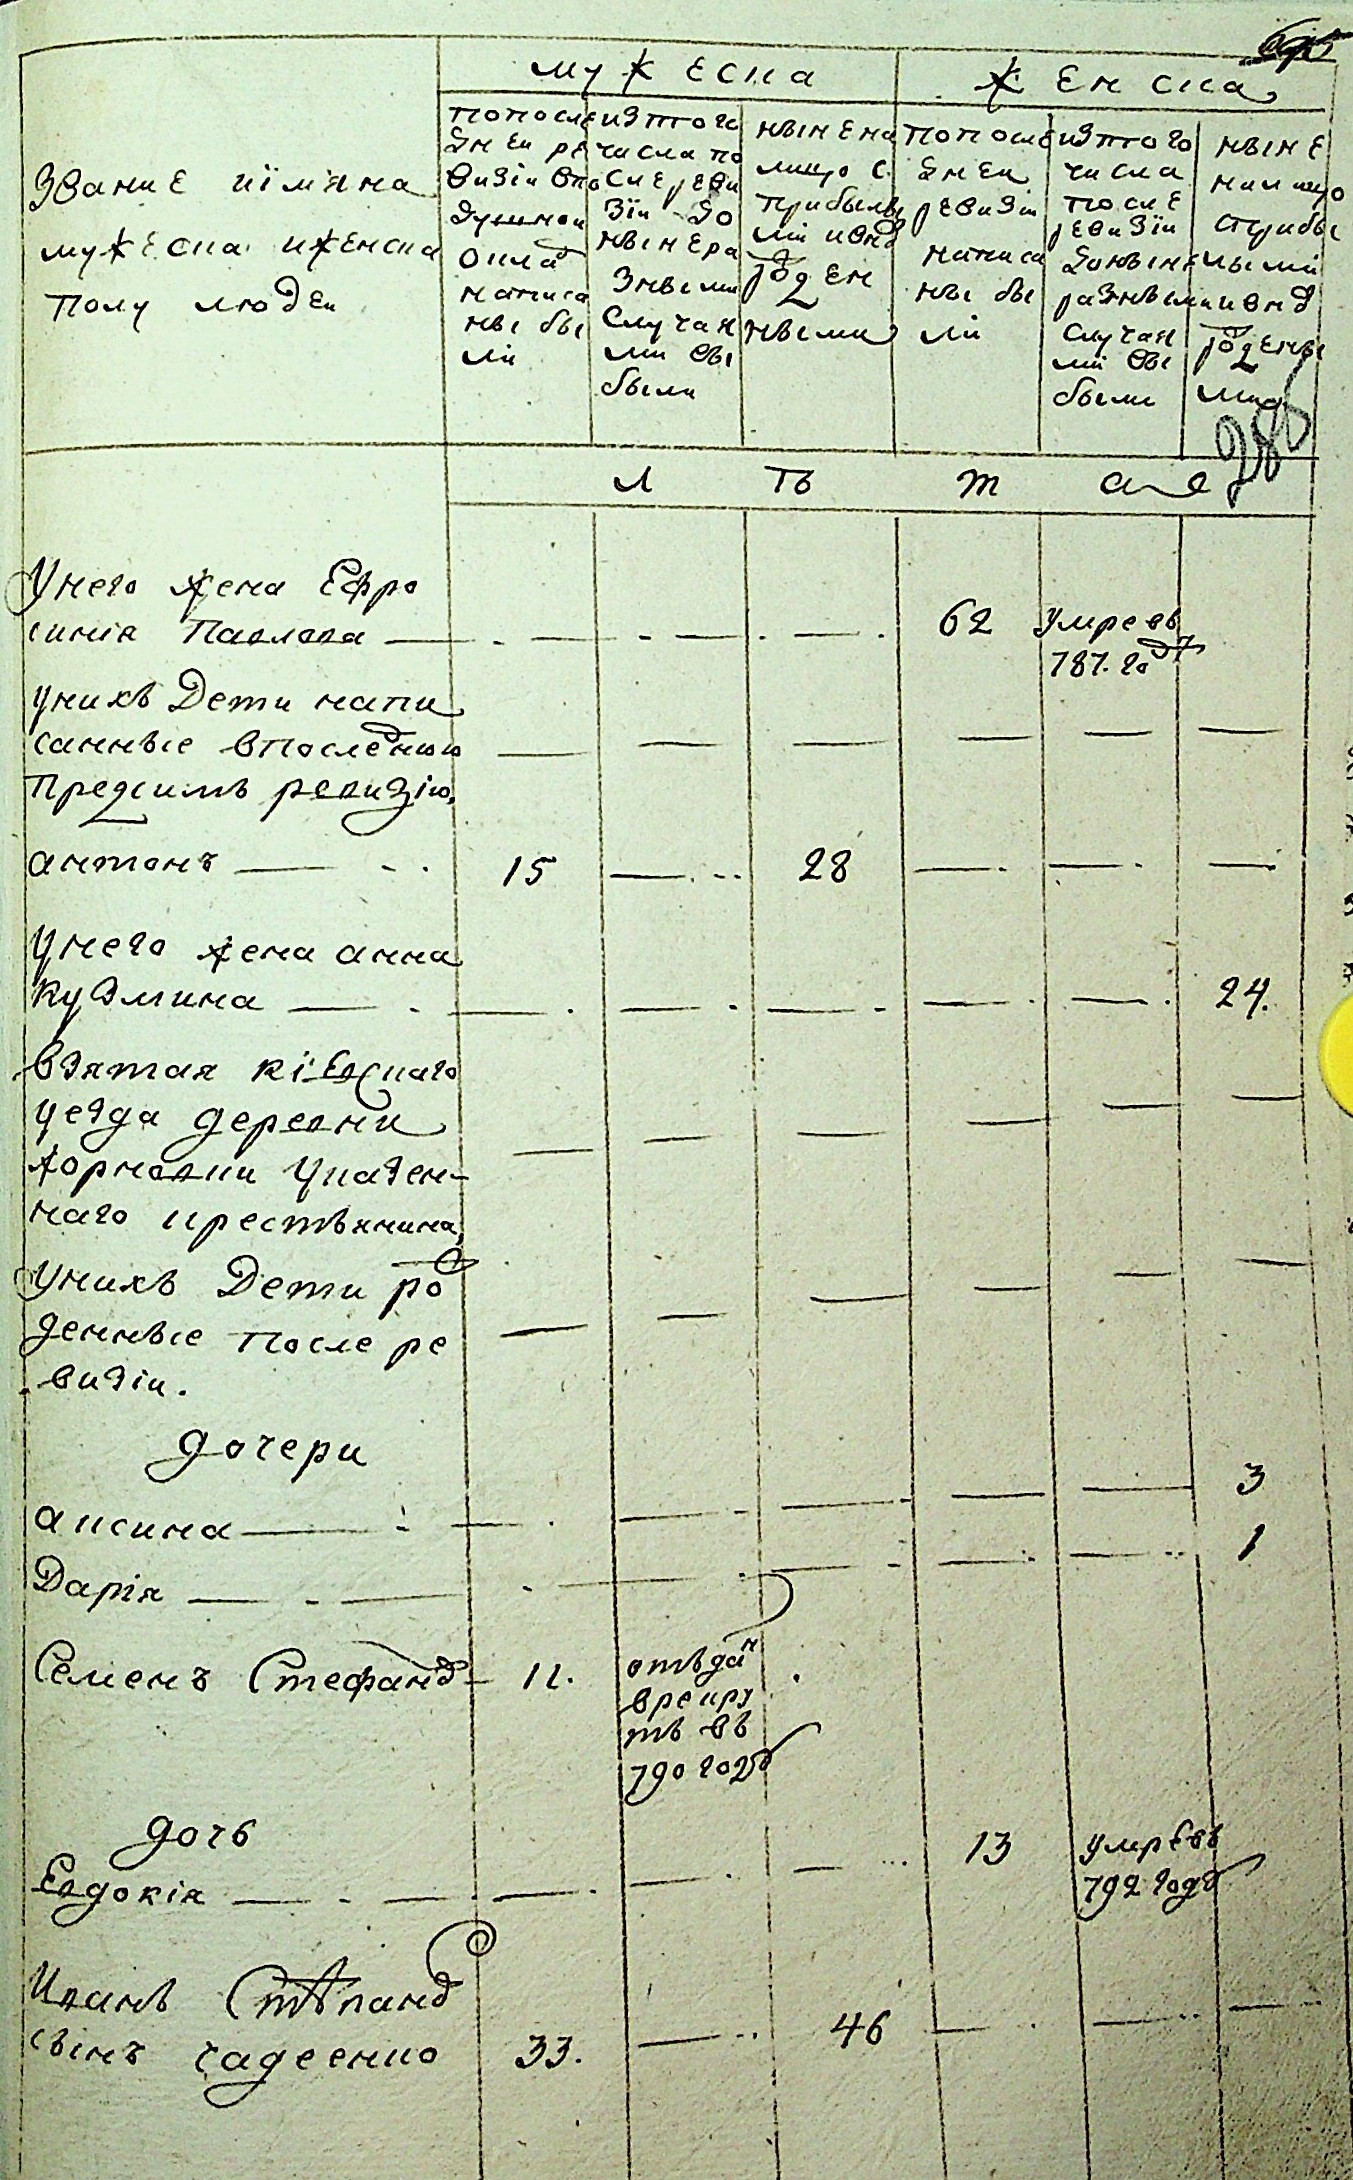 мужеска
женска
Звание и їмяна
мужеска иженска
полу людеи
попосле
днеи ре
визіи впо
душнои
окла
написа
ны бы
ли
изтого
числа по
сле реви
зїи до
нынера
зными
случая
ми вы
были
нынена
лицо с
прибылы
ми ивнов
рожден
ными
попосле
днеи
ревизіи
написа
ны бы
ли
изтого
числа
после
ревизїи
донынѣ
разными
случая
ми вы
были
нынѣ
налицо
сприбы
лыми
ивнов
рожденны
ми
285
лѣта
Унего жена Ефро
синія Павлова 62 умре въ
787. году
унихъ Дети напи
санные впоследнюю
предсимъ ревизію,
антонъ 15 28
унего жена анна
кузмина 24.
взятая кїевскаго
уезда деревни
жорновки указен-
наго крестьянина,
унихъ Дети ро
денные после ре
визіи.
дочери
аксинa 3
Дарія 1
Семенъ Стефанов 11. отъдан
врекру
тъ въ
790 году
дочь
Евдокія 13 умре въ
792 году
Иванъ Стѣпанов
сынъ гадеенко 33. 46